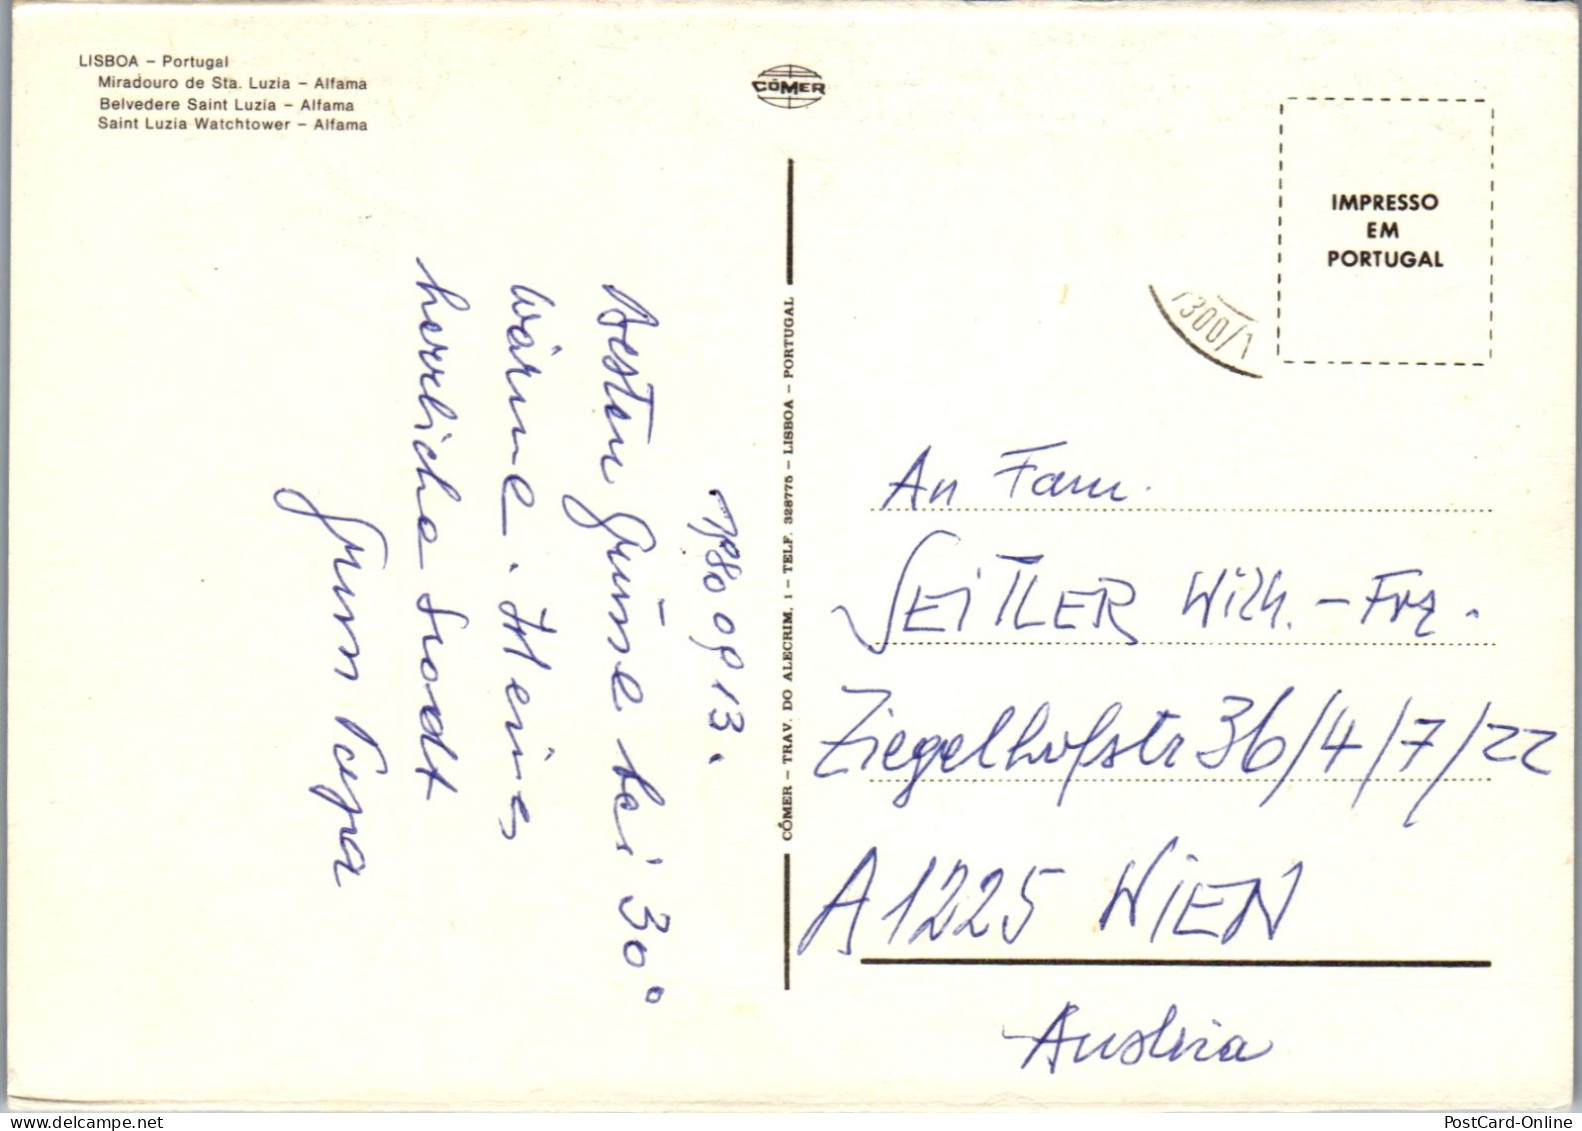 LISBOA – Portugal
Miradouro de Sta. Luzia – Alfama
Belvedere Saint Luzia – Alfama
Saint Luzia Watchtower – Alfama
CÓMER
IMPRESSO
EM
PORTUGAL
7300/1
1980 09 13.
Besten Grüsse bei 30°
Wärme. Heine
herrliche Stadt
CÓMER – TRAV. DO ALECRIM, 1 – TELF. 328775 – LISBOA – PORTUGAL
An Fam.
SEITLER Wilh. – Frz.
Ziegelhofstr 36/4/7/22
A 1225 WIEN
Austria
PostCard-Online
www.delcampe.net